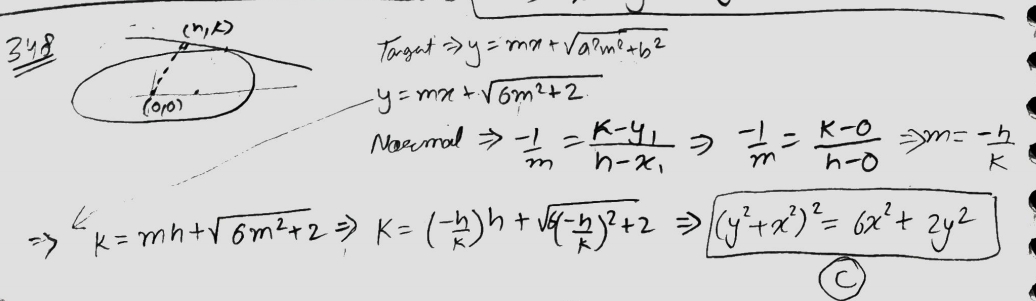 348
(h,k)
(0,0)
Tangent ⇒ y = mx + √a²m²+b²
y = mx + √6m²+2
Normal ⇒ -1/m = K-y₁/h-x₁ ⇒ -1/m = K-0/h-0 ⇒ m = -h/K
⇒ K = mh + √6m²+2 ⇒ K = (-h/K)h + √6(-h/K)²+2 ⇒ (y²+x²)² = 6x² + 2y²
C